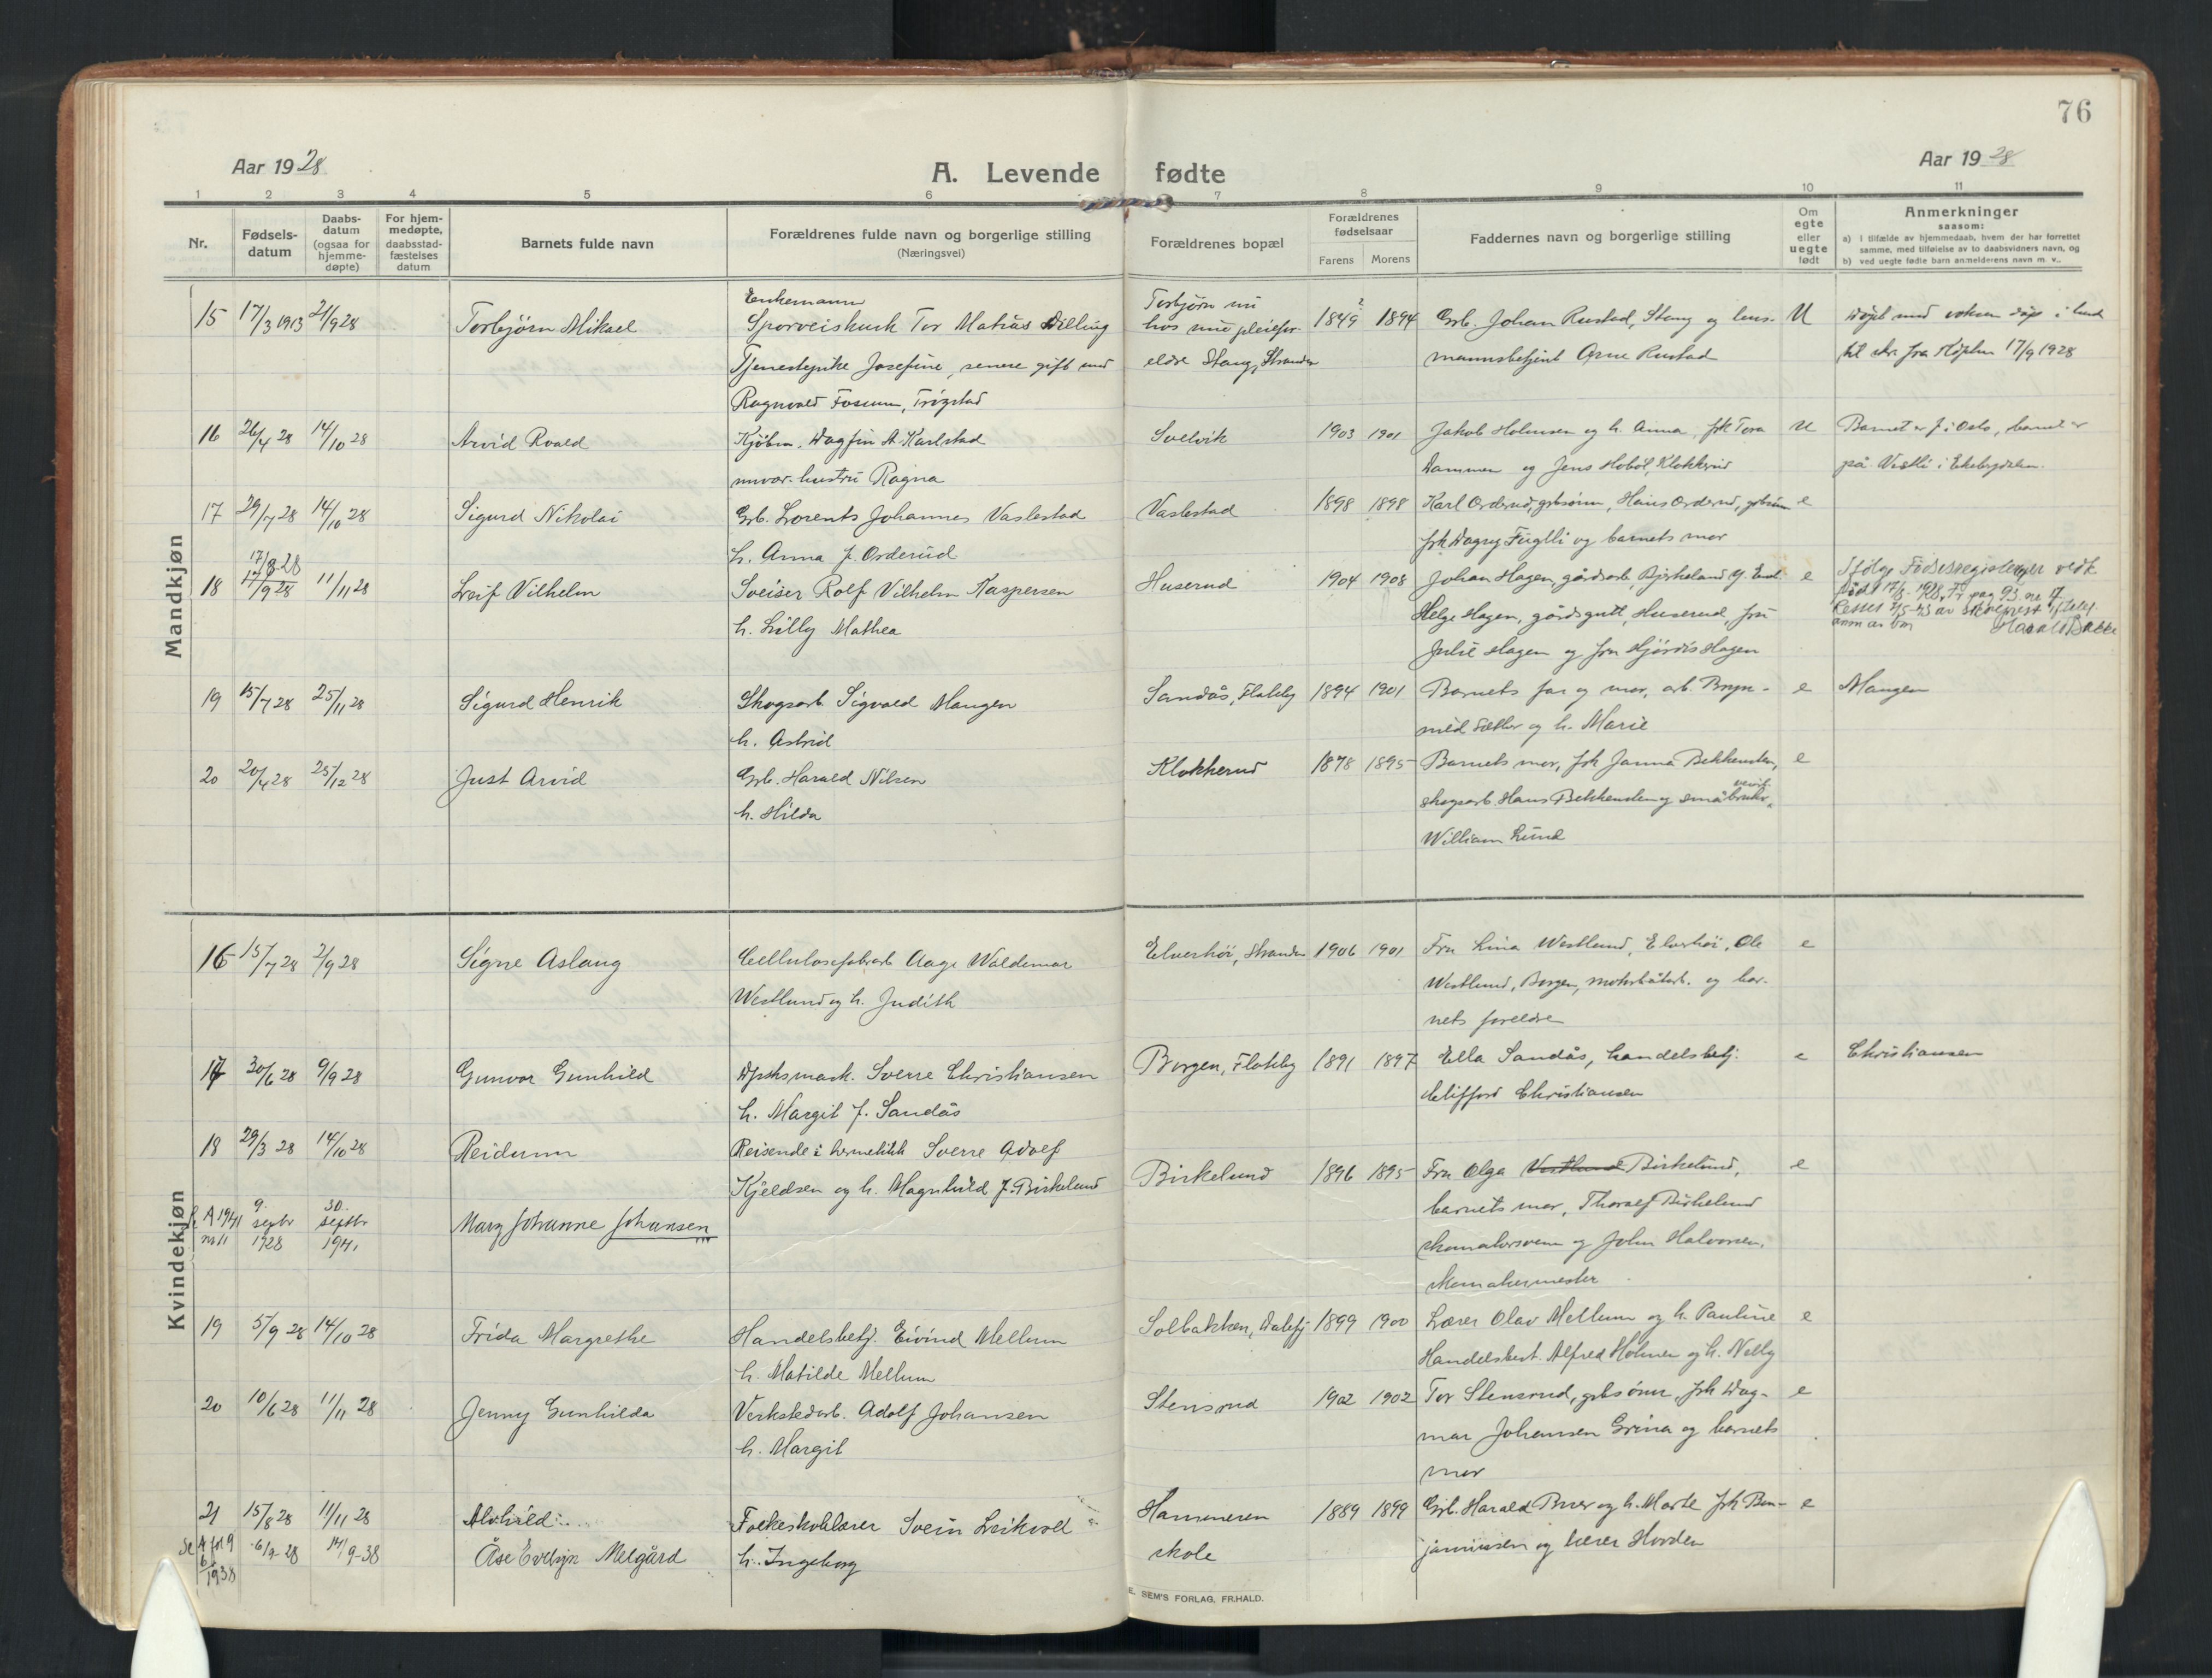 76
Aar 1928
A. Levende fødte
Aar 1928
1 2 3 4 5 6 7 8 9 10 11
Nr.
Fødsels-
datum
Daabs-
datum
(ogsaa for
hjemme-
døpte)
For hjem-
medøpte,
daabsstad-
fæstelses
datum
Barnets fulde navn
Forældrenes fulde navn og borgerlige stilling
(Næringsvei)
Forældrenes bopæl
Forældrenes
fødselsaar
Farens Morens
Faddernes navn og borgerlige stilling
Om
egte
eller
uegte
født
Anmerkninger
saasom:
a) i tilfælde av hjemmedaab, hvem der har forrettet
samme, med tilføielse av to daabsvidners navn, og
b) ved uegte fødte barn anmelderens navn m. v..
Mandkjøn
15 17/3 1913 21/9 28 Torbjørn Mikael
Enkemann
Sporveiskusk Tor Matias Dilling
Tjenestepike Josefine, senere gift med
Ragnvald Fosum, Trøgstad
Torbjørn nu
hos sine pleiefor-
eldre Stang, Stranden
1849 1894
Grb. Johan Rustad, Stang og lens-
mannsbetjent Arne Rustad
U
til fra 17/9 1928
16 26/4 28 14/10 28 Arvid Roald
Kjøbm. Dagfin A. Karlstad
hustru Ragna
Solvik 1903 1901
Jakob Holmsen og h. Anna, frk Tora
Dammen og Jens Hobøl, Klokkerud
U
Barnet er f. i Oslo, barnet er
på Vestli i Enebygdalen.
17 29/7 28 14/10 28 Sigurd Nikolai
Grb. Lorents Johannes Vaslestad
h. Anna f. Orderud
Vaslestad 1898 1898
Karl Orderud, grbsønn, Hans Orderud, grbsønn e
frk Dagny Fuglli og barnets mor
17/8-28
18 17/9 28 11/11 28 Leif Vilhelm
Sveiser Rolf Vilhelm Kaspersen
h. Lilly Mathea
Huserud 1904 1908
Johan Hagen, gårdsarb. Bjirkeland
Helge Hagen, gårdsgutt, Huserud, fru
Julie Hagen og fru Hjørdis Hagen
e
Ifølge Fødselsregisteret
født 17/8-1928, pag 93 nr 17
Harald Bakke
19 15/7 28 25/11 28 Sigurd Henrik
Skogsarb. Sigvald Mangen
h. Astrid
Sandås, Flateby 1894 1901
Barnets far og mor, arb. Bryn-
mid Sæther og h. Marie
e Mangen
20 20/4 28 25/12 28 Just Arvid
Grb. Harald Nilsen
h. Hilda
Klokkerud 1878 1895
Barnets mor, frk Janna Bekkensten, e
skogsarb. Hans Bekkensten og småbruker
William Lund
Kvindekjøn
16 15/7 28 2/9 28 Signe Aslaug
Cellulosefabarb Aage Waldemar
Westlund og h. Judith
Elverhöi, Stranden 1906 1901
Fru Lina Westlund, Elverhöi, Ole
Westlund, Borgen, og bar-
nets foreldre
e
17 30/6 28 9/9 28 Gunvor Gunhild
Dpsksmask. Sverre Christiansen
h. Margit f. Sandås
Borgen, Flateby 1891 1897
Ella Sandås, handelsbetj.
Clifford Christiansen
e Christiansen
18 29/3 28 14/10 28 Reidunn
Reisende i hermetikk Sverre Adolf
Kjeldsen og h. Magnhild f. Birkelund
Birkelund 1896 1895
Fru Olga Westlund Birkelund,
barnets mor, Thoralf Birkelund
skomakersvenn og John Halvorsen,
skomakermester
e
A 1941
nr 11
9.
septbr
1928
30.
septbr
1941
Mary Johanne Johansen
19 5/9 28 14/10 28 Frida Margrethe
Handelsbetj. Eivind Mellum
h. Matilde Mellum
Solbakken, Dalefj 1899 1900
Lærer Olav Mellum og h. Pauline
Handelsbest. Alfred Holmen og h. Nelly
e
20 10/6 28 11/11 28 Jenny Gunhilda
Verkstedarb. Adolf Johansen
h. Margit
Stensrud 1902 1902
Tor Stensrud, grbsønn, frk Dag-
mar Johansen Grina og barnets
mor
e
21 15/8 28 11/11 28 Alvhild
Folkeskolelærer Svein Leikvoll
h. Ingeborg
Hammeren
skole
1889 1899
Grb. Harald Buer og h. Marte frk Ben-
jaminsen og lærer Hovden
e
Se A fol 9
6
1938
6/9-28 14/9-38 Åse Evelyn Melgård
E. SEM'S FORLAG, FR.HALD.